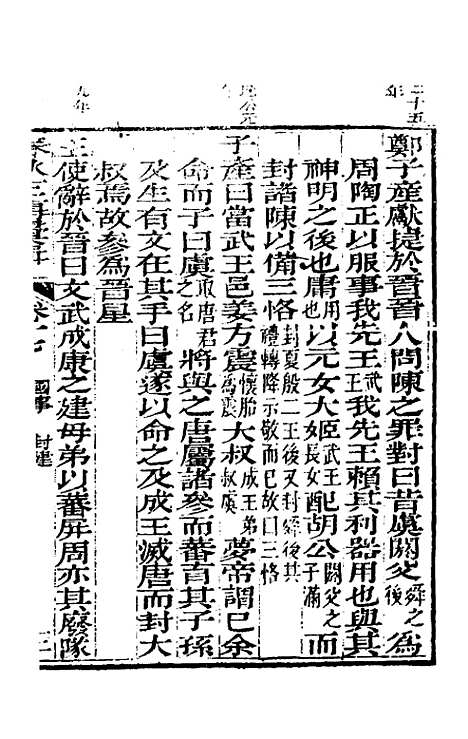 二十五年
鄭子産獻捷於晉晉人問陳之罪對曰昔虞閼父舜之後為
周陶正以服事我先王武王我先王賴其利器用也與其
神明之後也庸用也以元女大姬武王長女配胡公閼父之子滿而
封諸陳以備三恪封夏殷二王後又封舜後其禮轉降示敬而已故曰三恪
昭公元年
子産曰當武王邑姜方震懷胎為震大叔成王弟叔虞夢帝謂已余
命而子曰虞取唐君之名將與之唐屬諸參而蕃育其子孫
及生有文在其手曰虞遂以命之及成王滅唐而封大
叔焉故參為晉星
九年
王使辭於晉曰文武成康之建母弟以蕃屏周亦其廢隊
卷十七 國事 封建